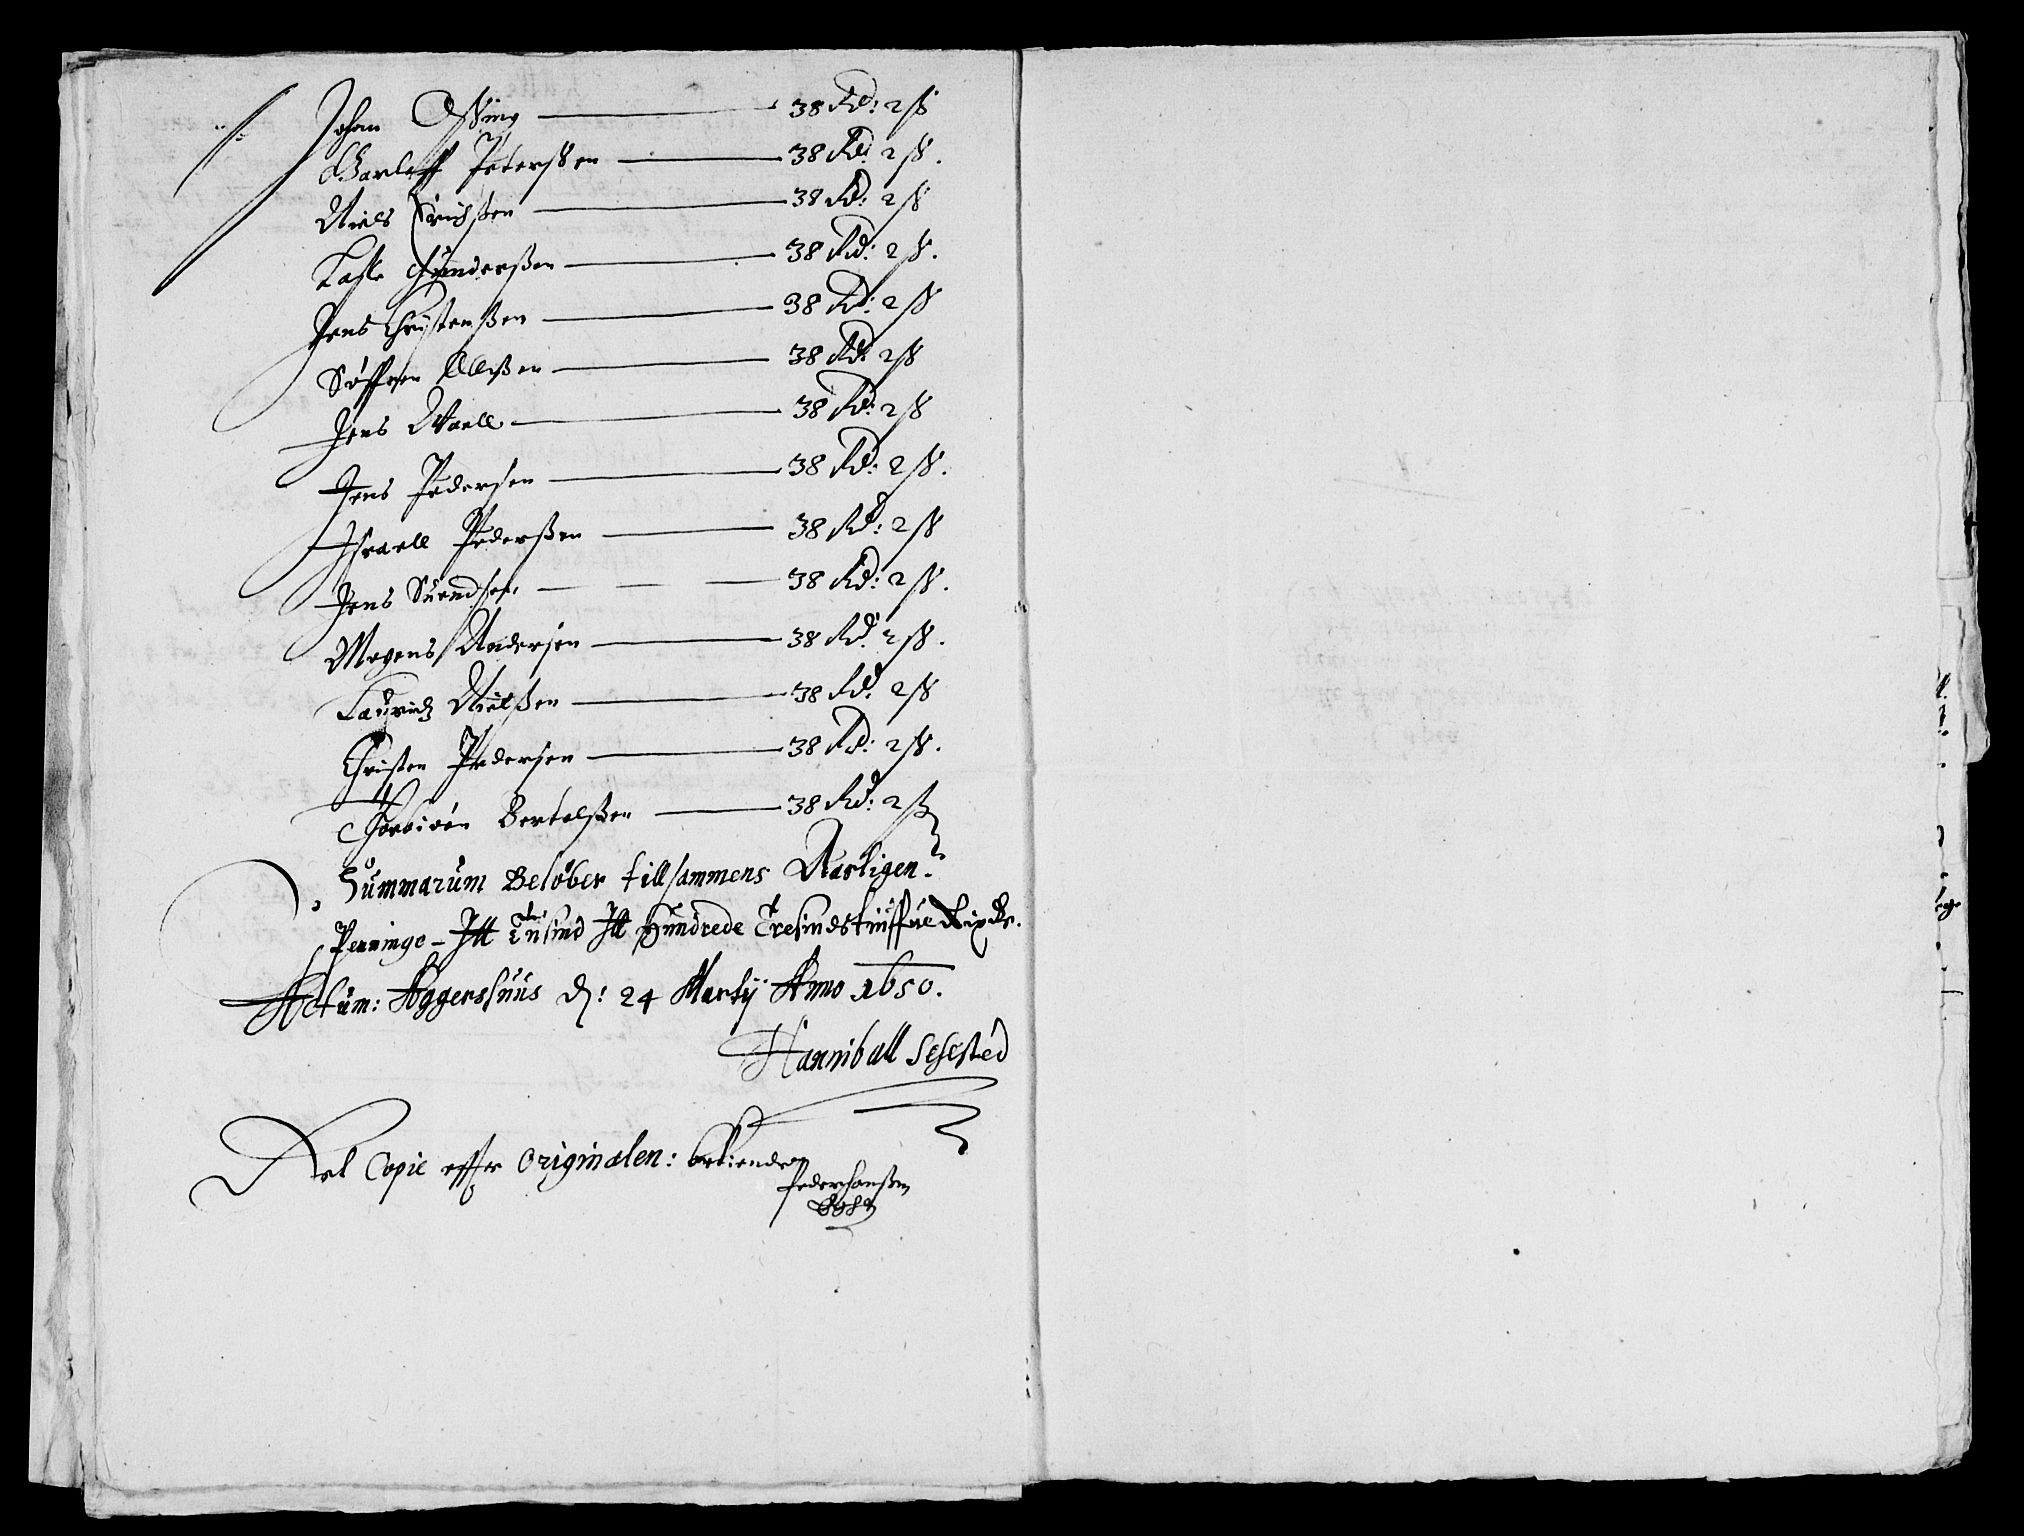 Johan — 38 Rd: 2 ß
Garleff Peterßen — 38 Rd: 2 ß.
Niels Erichßen — 38 Rd: 2 ß
Lasse Gunderßen — 38 Rd: 2 ß.
Jens Christenßen — 38 Rd: 2 ß
Søffren Olleßen — 38 Rd: 2 ß
Jens — 38 Rd: 2 ß
Jens Pedersen — 38 Rd: 2 ß.
Israell Pederßen — 38 Rd: 2 ß
Jens Suendsen — 38 Rd: 2 ß.
Mogens Andersen — 38 Rd: 2 ß.
Lauridz Nielßen — 38 Rd: 2 ß
Christen Pedersen — 38 Rd: 2 ß.
Thorbiøn Bertelßen — 38 Rd: 2 ß
Summarum Beløber tillsammens Aarligen
Penninge – Itt Tusind Itt Hundrede Tresindstiuffue Rixdr.
Actum: Aggershuus d: 24 Martij Anno 1650.
Hanniball Sehested
Ret Copie effter Originalen: bekiender
Pederhanßen